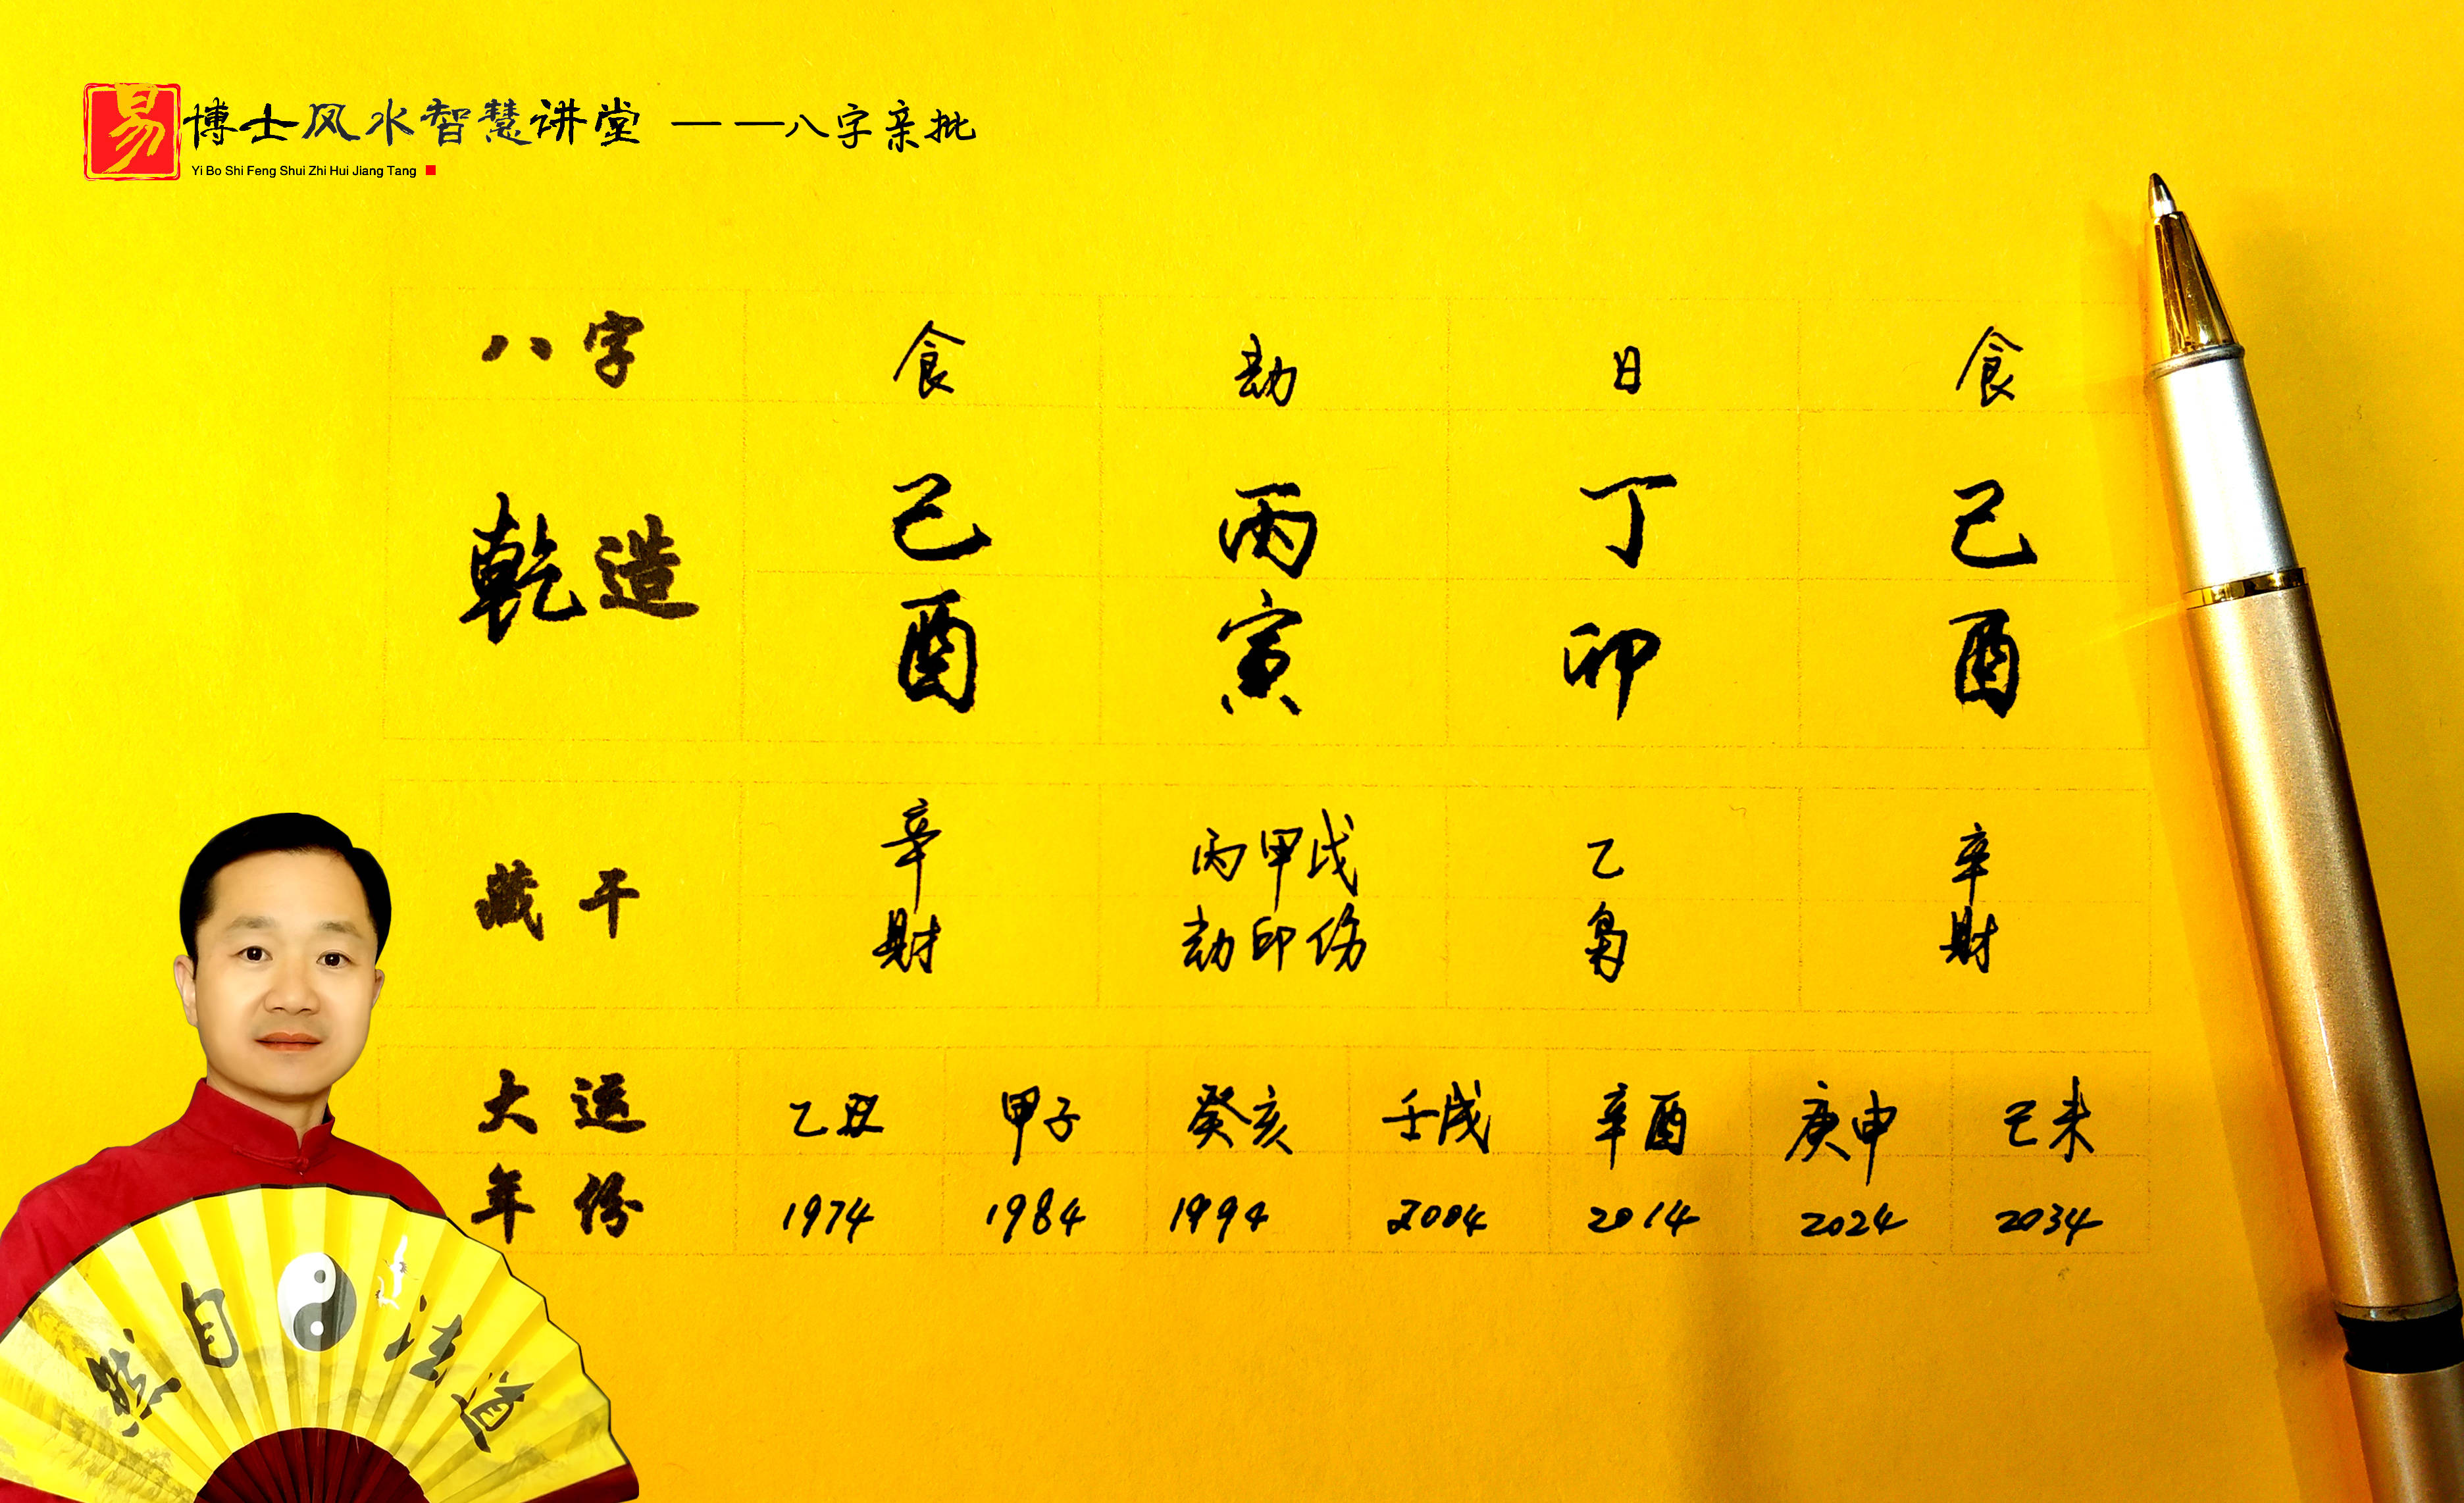 易博士风水智慧讲堂 ——八字亲批
Yi Bo Shi Feng Shui Zhi Hui Jiang Tang
八字 食 劫 日 食
乾造 己 丙 丁 己
酉 寅 卯 酉
藏干 辛 丙甲戊 乙 辛
财 劫印伤 枭 财
大运 乙丑 甲子 癸亥 壬戌 辛酉 庚申 己未
年份 1974 1984 1994 2004 2014 2024 2034
然自法道